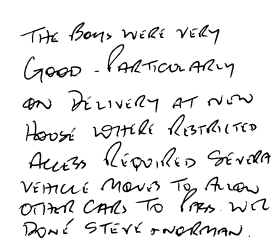 THE BOYS WERE VERY
GOOD - PARTICULARLY
ON DELIVERY AT NEW
HOUSE WHERE RESTRICTED
ACCESS REQUIRED SEVERA
VEHICLE MOVES TO ALLOW
OTHER CARS TO PASS. WELL
DONE STEVE & NORMAN.